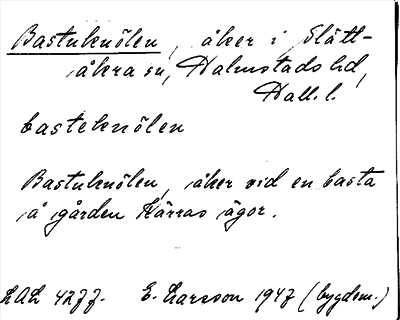 Bastuknölen, åker i Slätt-
åkra sn, Halmstads hd,
Hall. l.
basteknölen
Bastuknölen, åker vid en basta
å gården Kärras ägor.
LAL 4277. E. Larsson 1947 (bygdem.)